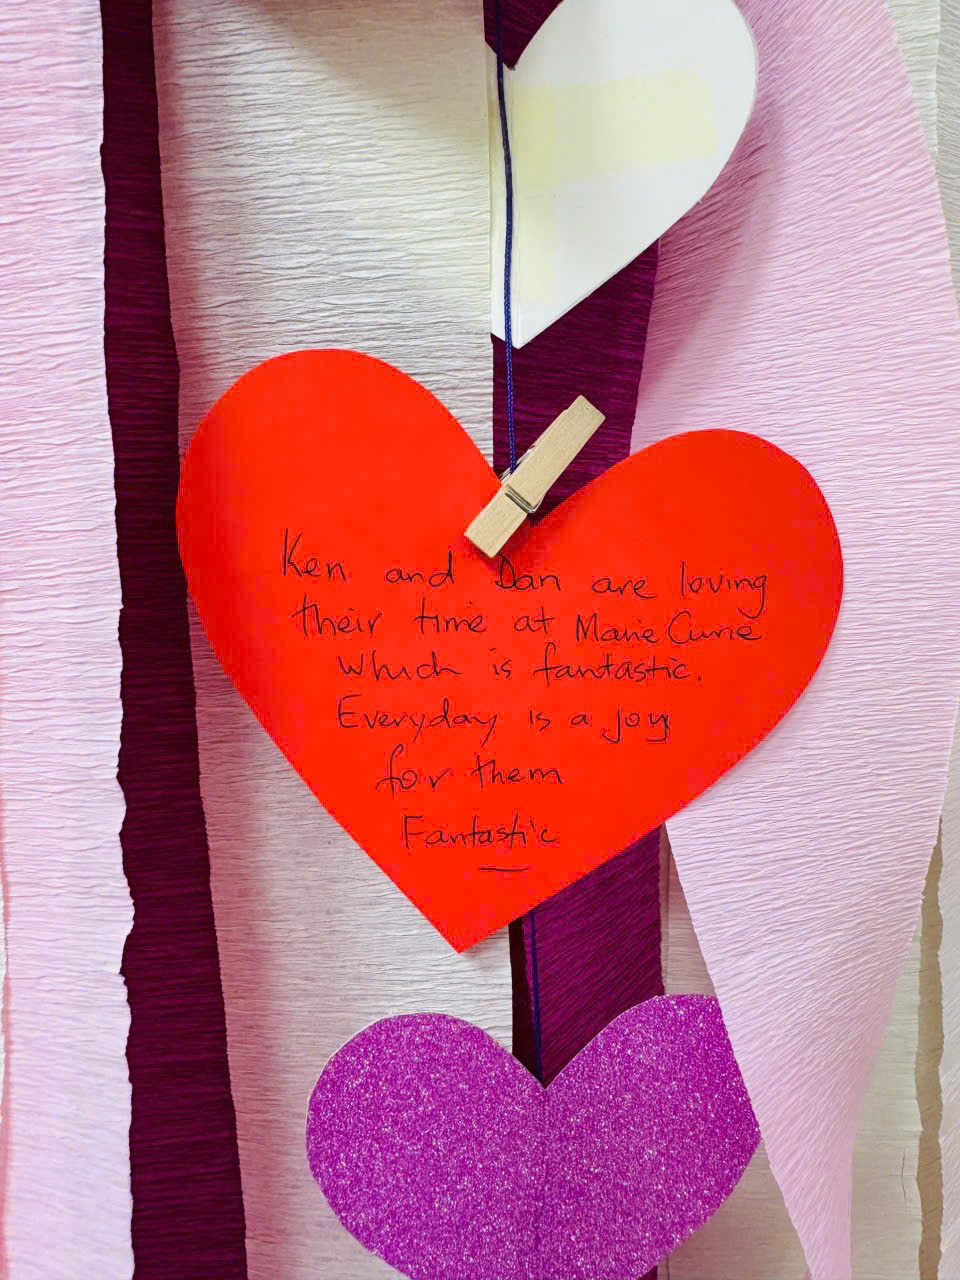 Ken and Dan are loving
their time at Marie Curie
which is fantastic.
Everyday is a joy
for them
Fantastic